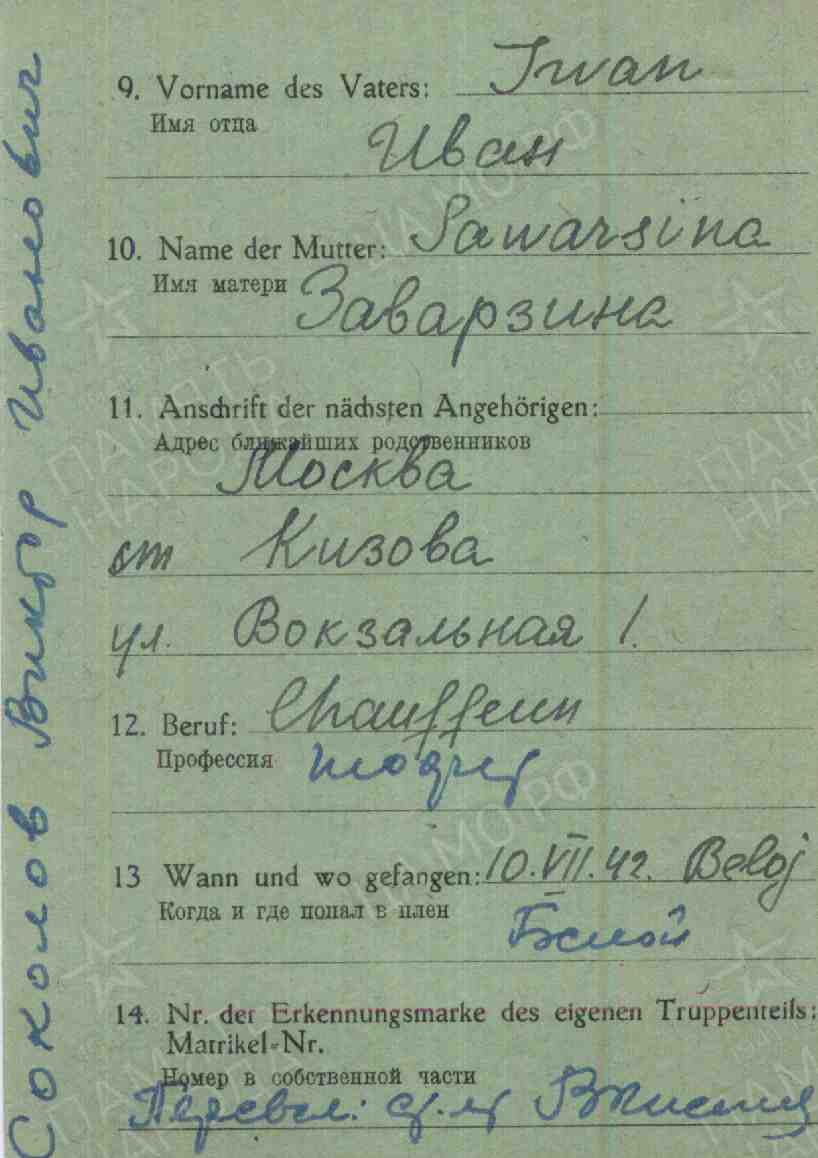 9. Vorname des Vaters: Iwan
Имя отца
Иван
10. Name der Mutter: Sawarsina
Имя матери
Заварзина
11. Anschrift der nächsten Angehörigen:
Адрес ближайших родственников
Москва
ст Кизова
ул. Вокзальная 1.
12. Beruf: Chauffeur
Профессия шофер
13 Wann und wo gefangen: 10.VII.42. Beloj
Когда и где попал в плен
Белой
14. Nr. der Erkennungsmarke des eigenen Truppenteils:
Matrikel-Nr.
Номер в собственной части
Перевел:
Соколов Виктор Иванович
ПАМЯТЬ
НАРОДА
ПАМО.РФ